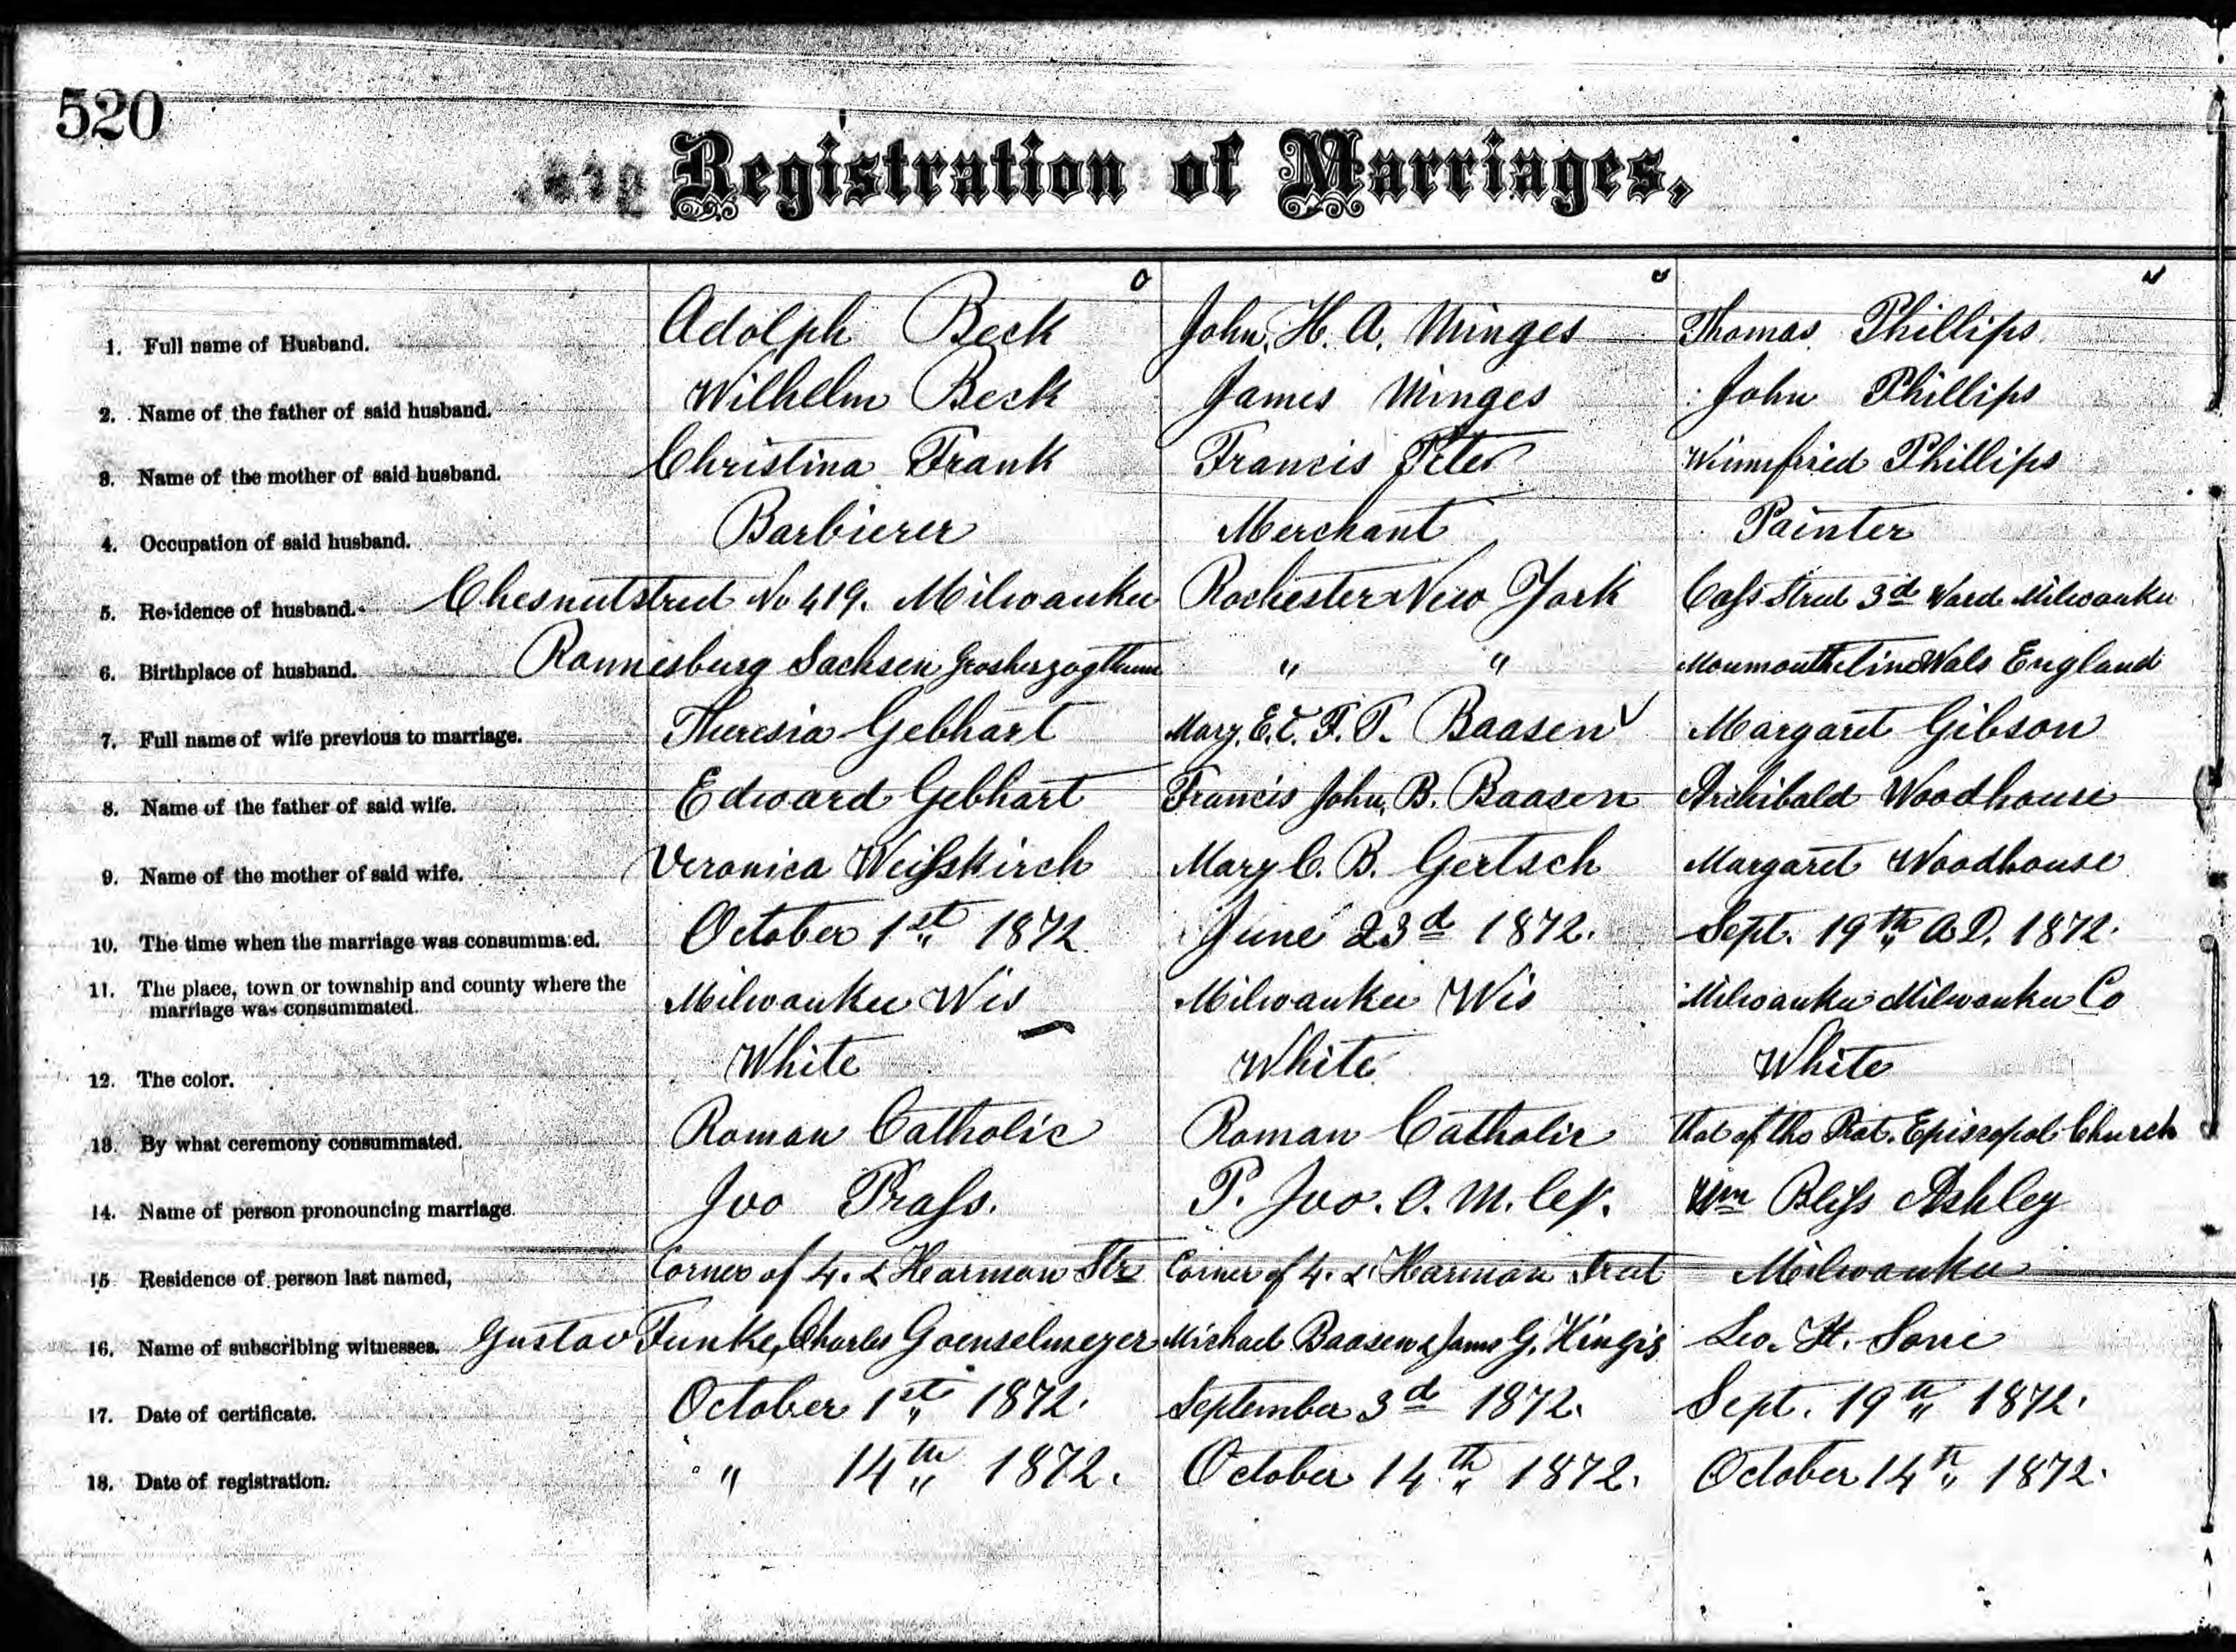 520
Registration of Marriages,
1. Full name of Husband. Adolph Beck John. H. A. Minges Thomas Phillips
2. Name of the father of said husband. Wilhelm Beck James Minges John Phillips
3. Name of the mother of said husband. Christina Frank Francis Peter Winnifried Phillips
4. Occupation of said husband. Barbierer Merchant Painter
5. Residence of husband. Chesnutstreet No 419. Milwaukee Rochester New York Cass Street 3d Ward Milwaukee
6. Birthplace of husband. Ronnesburg Sachsen Grosherzogthum " " Wals England
7. Full name of wife previous to marriage. Theresia Gebhart Mary. E. C. F. T. Baasen Margaret Gibson
8. Name of the father of said wife. Edward Gebhart Francis John. B. Baasen Archibald Woodhouse
9. Name of the mother of said wife. Veronica Weisskirch Mary C. B. Gertsch Margaret Woodhouse
10. The time when the marriage was consummated. October 1st 1872 June 23d 1872. Sept. 19th A.D. 1872.
11. The place, town or township and county where the Milwaukee Wis Milwaukee Wis Milwaukee Milwaukee Co
marriage was consummated.
12. The color. White White White
13. By what ceremony consummated. Roman Catholic Roman Catholic that of the Prot. Episcopal Church
14. Name of person pronouncing marriage. Ivo Prass. P. Ivo. O. M. Cap. Wm Bliss Ashley
15 Residence of person last named, Corner of 4. & Harmon Str Corner of 4. & Harmon street Milwaukee
16. Name of subscribing witnesses. Gustav Funke, Charles Goenselmeyer Michael Baasen & James G. Leo. H.
17. Date of certificate. October 1st 1872. September 3d 1872. Sept. 19th 1872.
18. Date of registration. " 14th 1872. October 14th 1872. October 14th 1872.